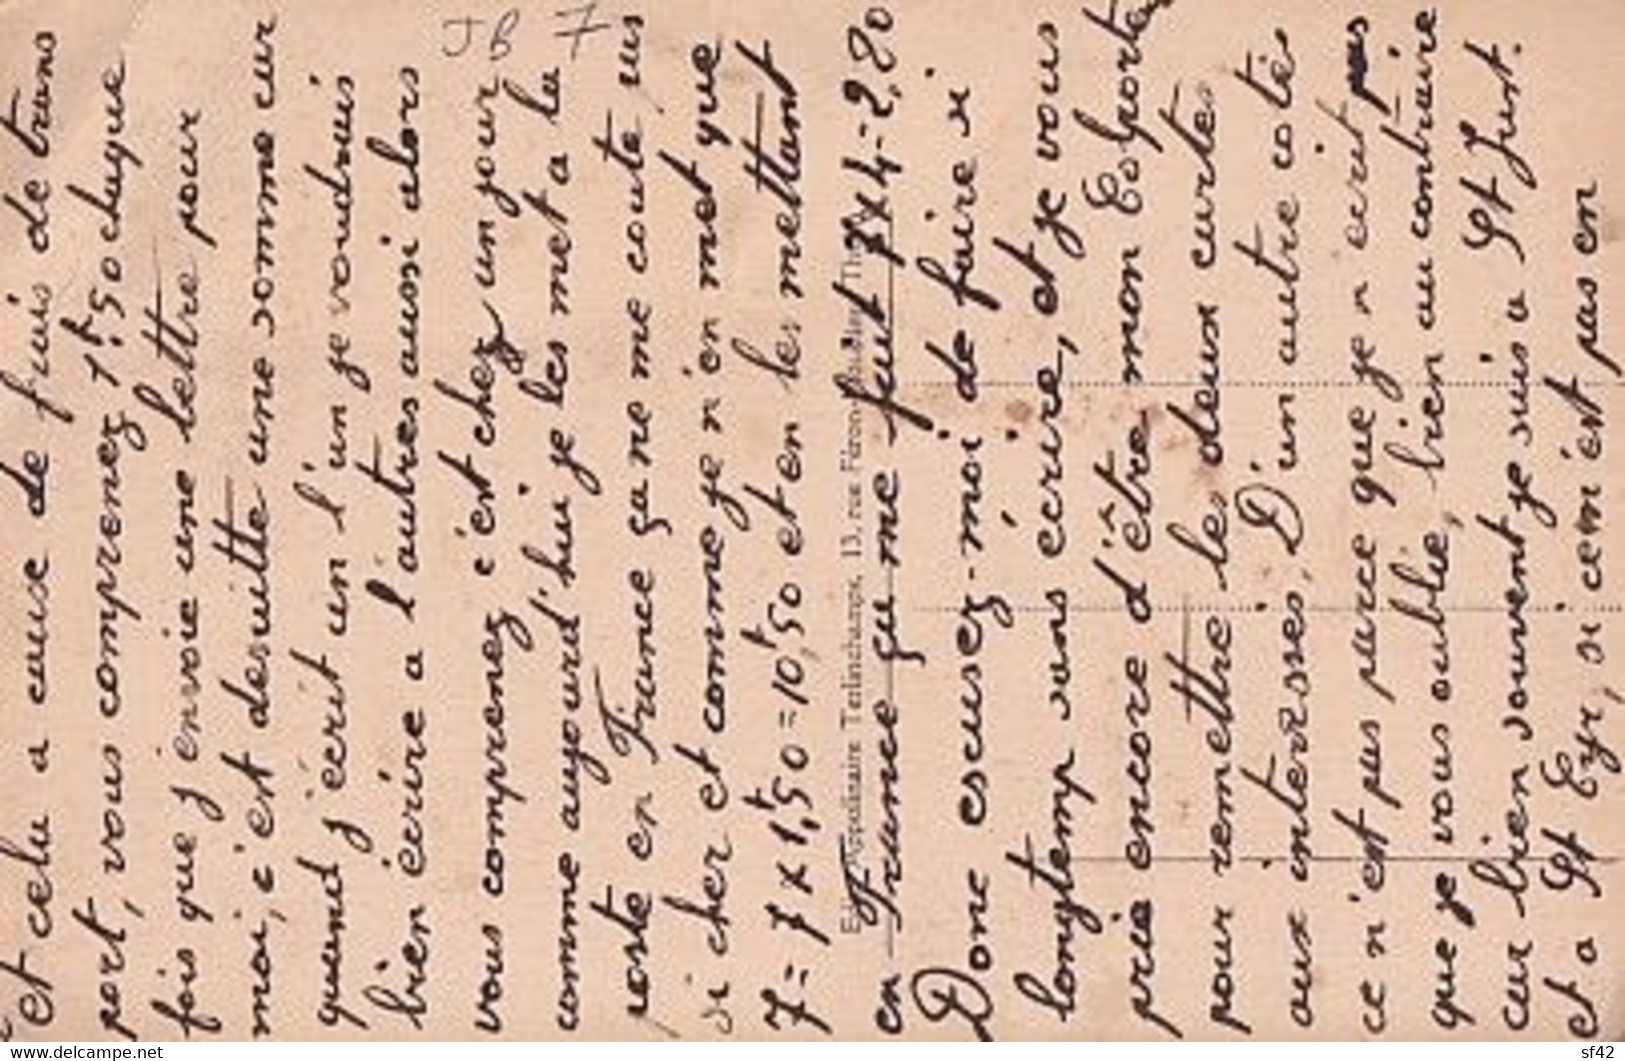 et cela a cause de frais de trans
port, vous comprenez 1f,50 chaque
fois que j envoie une lettre pour
moi, c'est desuitte une somme car
quand j'écrit un l'un je voudrais
bien écrire a l'autres aussi alors
vous comprenez c'est chez un jour
comme aujourd'hui je les met a la
poste en France ça ne me coute pas
si cher et comme je n'en met que
7 = 7 x 1f,50 = 10f,50 et en les mettant
en France ça me fait 7x4 - 2,80
Donc escusez-moi de faire si
longtemp sans écrire, et je vous
prie encore d'être mon Colporteur
pour remettre les deux cartes
aux interesses, D'un autre cotés
ce n'est pas parce que je n ecrit pas
que je vous oublie, bien au contraire
car bien souvent je suis a St Just.
et a St Eyr, si cen'est pas en
JB 7
13, rue Féron
delcampe.net
sf42